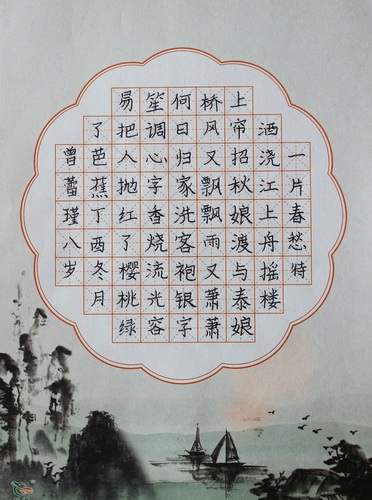 一片春愁特
洒浇江上舟摇楼
上帘招秋娘渡与泰娘
桥风又飘飘雨又萧萧
何日归家洗客袍银字
笙调心字香烧流光容
易把人抛红了樱桃绿
了芭蕉丁酉冬月
曾蕾瑾八岁